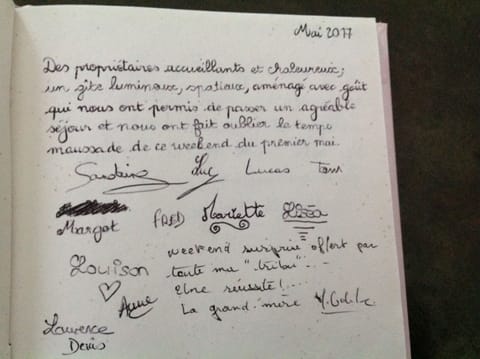 Mai 2017
Des propriétaires accueillants et chaleureux;
un gîte lumineux, spatieux, aménagé avec goût
qui nous ont permis de passer un agréable
séjour et nous ont fait oublier le temps
maussade de ce weekend du premier mai.
Sandrine Luc Lucas Tom
Margot FRED Mariette Lizéa
weekend surprise offert par
Louison toute ma "tribu"...
Anne Une réussite!...
La grand-mère
Laurence
Denis